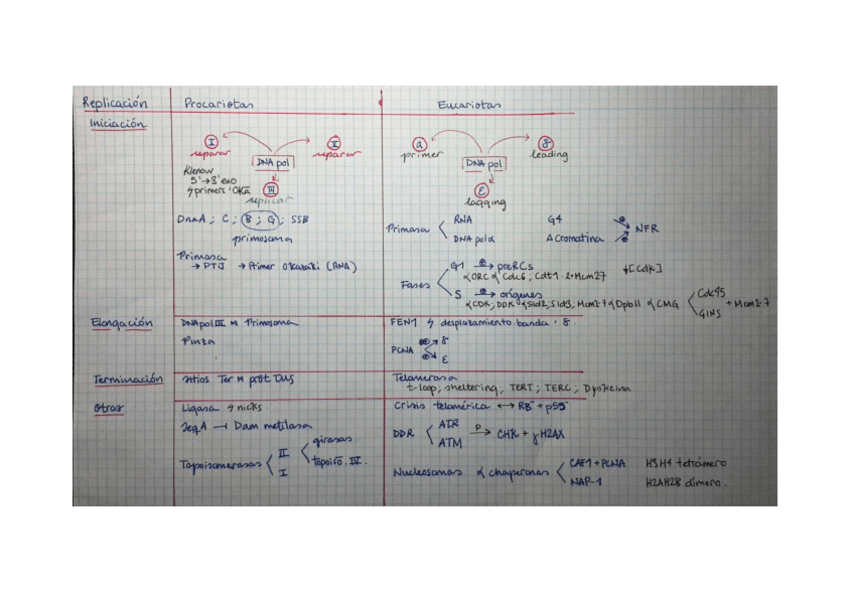 Replicación Procariotas Eucariotas
Iniciación
I II α δ
reparar DNA pol reparar primer DNA pol leading
Klenow
5'→3' exo
III ε
replicar lagging
DnaA; C; B; G; SSB
primosoma
Primasa RNA G4
DNA pol α Δ Cromatina NFR
Primasa
→ PTJ → Primer Okazaki (RNA)
Fases G1 ⊕→ preRCs ↓[Cdk]
αORC α Cdc6; Cdt1·2·Mcm27
S ⊕→ orígenes
αCDK; DDK α Sld2; Sld3; Mcm2-7 α Dpb11 α CMG Cdc45 + Mcm2-7
GINS
Elongación DNApol III Primosoma FEN1 ϟ desplazamiento banda · δ
Pinza PCNA ⊕→ δ
⊕→ ε
Terminación sitios Ter prot TUS Telomerasa
t-loop, sheltering, TERT; TERC; Dyskeina
Otros Ligasa ϟ nicks. Crisis telomérica ↔ RB⁻ + p53⁻
SeqA ⊣ Dam metilasa DDR ATR P→ CHK + γH2AX
ATM
Topoisomerasas II girasas
topoiso. IV.
I
Nucleosomas α chaperonas CAF1 + PCNA H3H4 tetrámero
NAP-1 H2AH2B dímero.